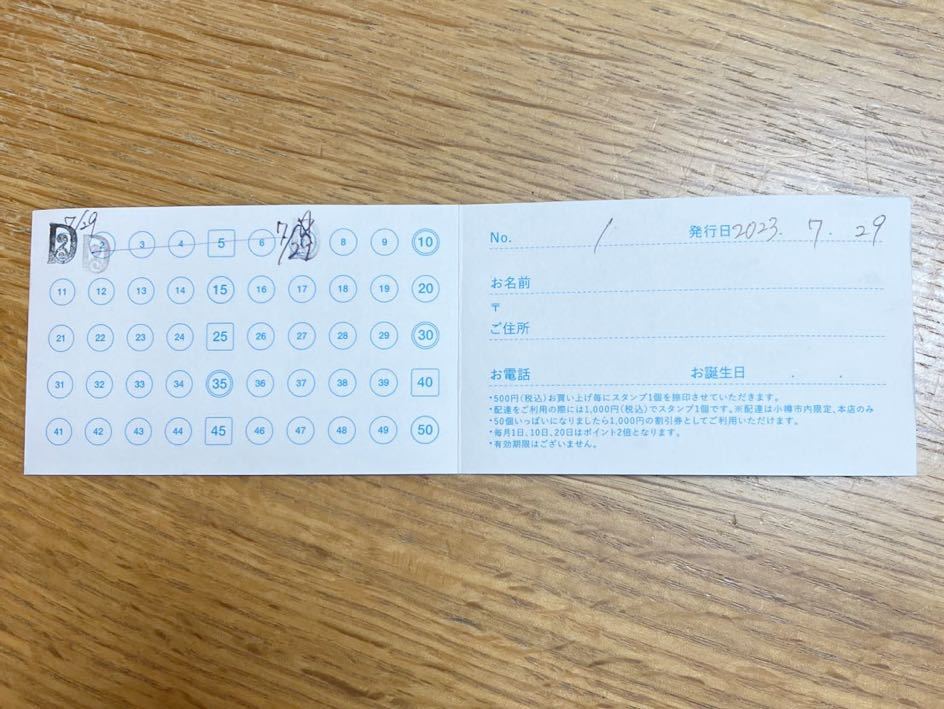 7/29
7/29
D D 2 3 4 5 6 8 9 10
11 12 13 14 15 16 17 18 19 20
21 22 23 24 25 26 27 28 29 30
31 32 33 34 35 36 37 38 39 40
41 42 43 44 45 46 47 48 49 50
No. 1 発行日2023. 7. 29
お名前
〒
ご住所
お電話 お誕生日 . .
・500円(税込)お買い上げ毎にスタンプ1個を捺印させていただきます。
・配達をご利用の際には1,000円(税込)でスタンプ1個です。※配達は小樽市内限定、本店のみ
・50個いっぱいになりましたら1,000円の割引券としてご利用いただけます。
・毎月1日、10日、20日はポイント2倍となります。
・有効期限はございません。